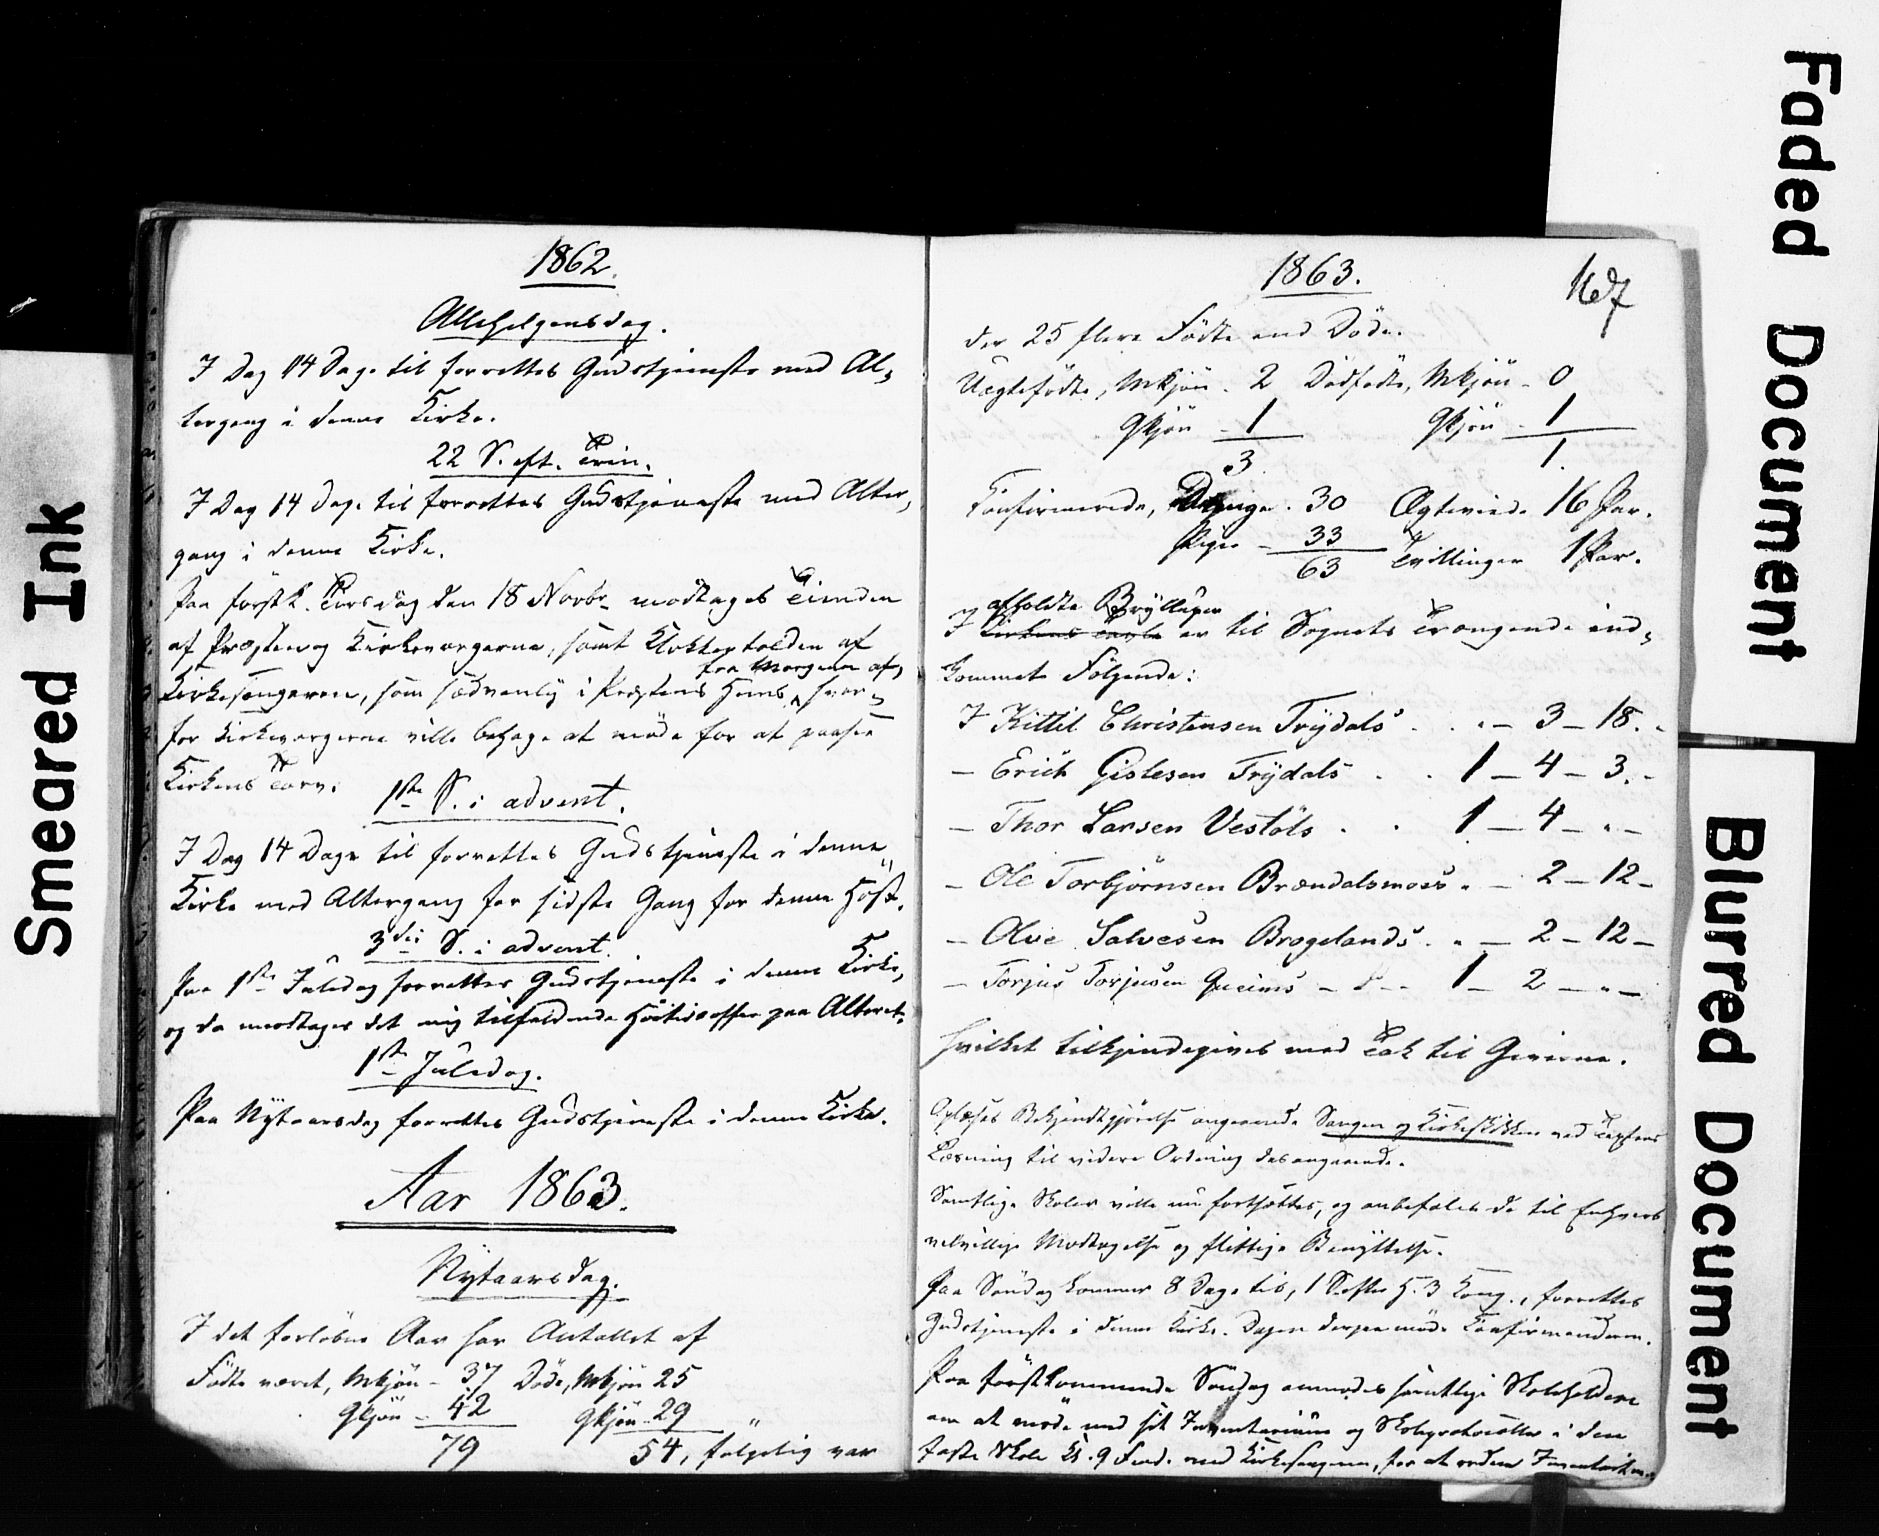 1862.
Allehelgensdag.
I Dag 14 Dage til forrettes Gudstjeneste med Al-
tergang i denne Kirke.
22 S. eft. Trin.
I Dag 14 Dage til forrettes Gudstjeneste med Alter-
gang i denne Kirke.
Paa førstk. Tirsdag den 18 Novbr modtages Tienden
af Præsten og Kirkeværgerne, samt Klokkertolden af
Kirkesangeren, som sædvanlig i Præstens Huus, fra Morgenen af, hvor-
for Kirkeværgerne ville behage at møde for at paasee
Kirkens Tarv.
1ste S. i advent.
I Dag 14 Dage til forrettes Gudstjeneste i denne
Kirke med Altergang for sidste Gang for denne Høst.
3die S. i advent.
Paa 1ste Juledag forrettes Gudstjeneste i denne Kirke,
og da modtages det mig tilfaldende Høitidsoffer paa Alteret.
1ste Juledag.
Paa Nytaarsdag forrettes Gudstjeneste i denne Kirke.
Aar 1863.
Nytaarsdag.
I det forløbne Aar har Antallet af
Fødte været, Mkjøn - 37 Døde, Mkjøn 25
Qkjøn - 42 Qkjøn - 29
79 54, følgelig var
1863.
167
der 25 flere Fødte end Døde.
Uægtefødte, Mkjøn - 2 Dødfødte, Mkjøn - 0
Qkjøn - 1 Qkjøn - 1
3. 1.
Confirmerede, Drenge - 30 Ægteviede 16 Par.
Piger - 33 Tvillinger 1 Par.
63
afholdte Brylluper
I Kirkens Tavle er til Sognets Trængende ind-
kommet Følgende:
I Kittil Christensen Trydals . . - 3 - 18. -
- Erich Gislesen Trydals . . 1 - 4 - 3. -
- Thor Larsen Vestøls . . 1 - 4 - " -
- Ole Torbjørnsen Brændalsmoes . - 2 - 12 -
- Olve Salvesen Brægelands . . - 2 - 12 -
- Torjus Torjusen Gueims - 1 - 2 - " -
hvilket tilkjendegives med Tak til Giverne.
Oplæses Bekjendtgjørelse angaaende Sangen og Kirkeskikken ved Textens
Læsning til videre Ordning desangaaende.
Samtlige Skoler ville nu fortsættes, og anbefales de til Enhvers
velvillige Modtagelse og flittige Benyttelse.
Paa Søndag kommer 8 Dage til, 1 S. efter H. 3 Kong., forrettes
Gudstjeneste i denne Kirke. Dagen derpaa møde Confirmanderne.
Paa førstkommende Søndag anmodes samtlige Skoleholdere
om at møde med sit Inventarium og Skoleprotocoller i den
faste Skole Kl. 9 Form. med Kirkesangeren, for at ordne Inventariet.
Smeared Ink
Faded Document
Blurred Document